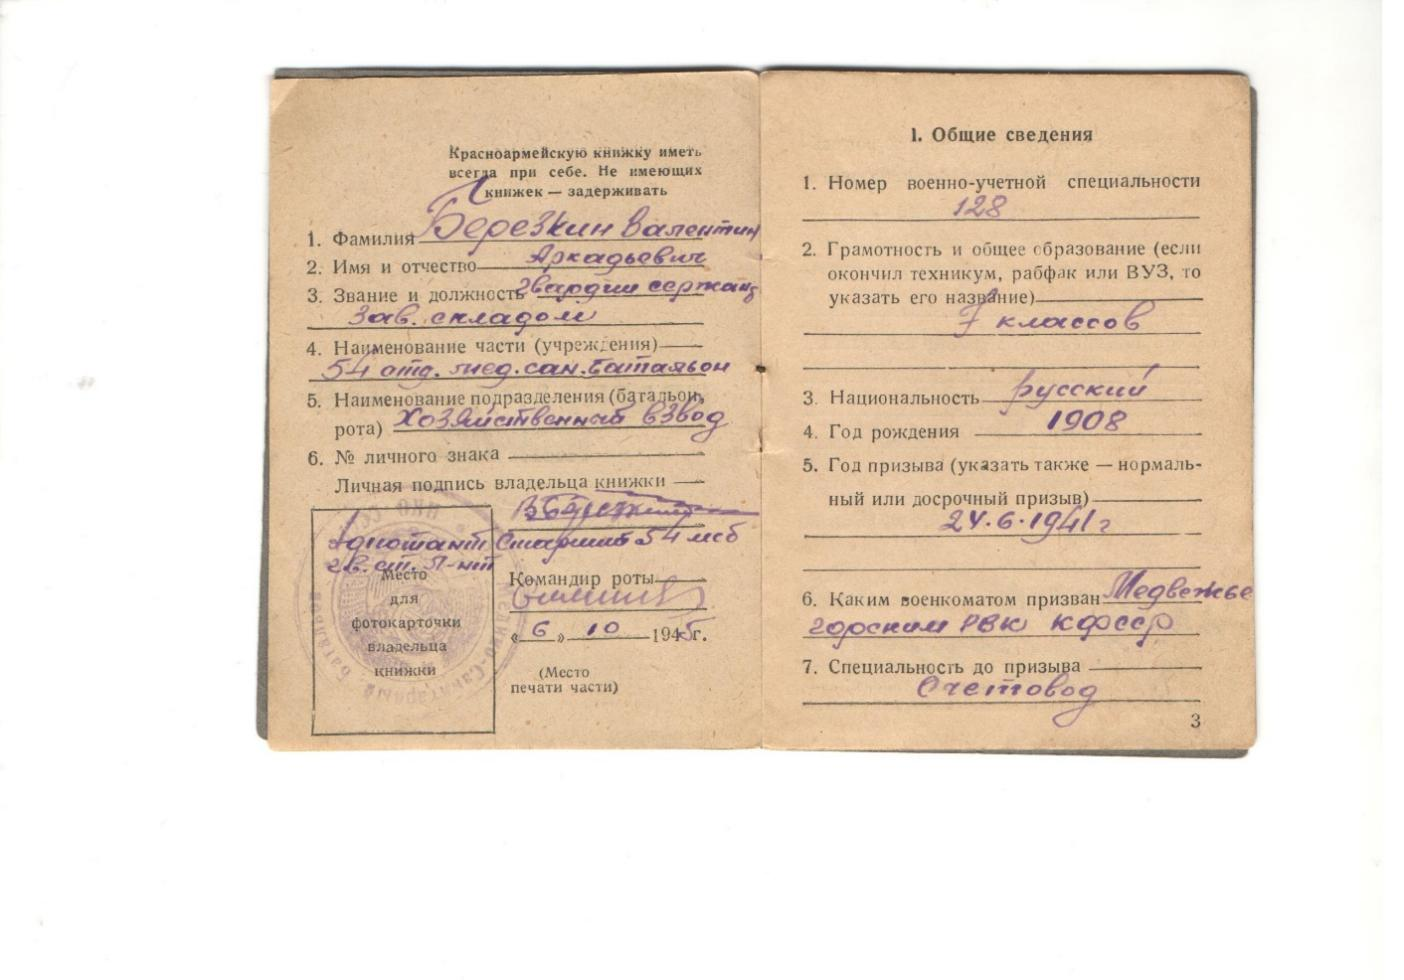 Красноармейскую книжку иметь
всегда при себе. Не имеющих
книжек — задерживать
1. Фамилия Березкин Валентин
2. Имя и отчество Аркадьевич
3. Звание и должность гвардии сержант
Зав. складом
4. Наименование части (учреждения)
54 отд. мед. сан. батальон
5. Наименование подразделения (батальон,
рота) Хозяйственный взвод
6. № личного знака
Личная подпись владельца книжки
Адъютант Старший 54 мсб
гв. ст. л-нт
Место
для
фотокарточки
владельца
книжки
Командир роты
« 6 » 10 1945г.
(Место
печати части)
НКО СССР
Медико-Санитарный Батальон
I. Общие сведения
1. Номер военно-учетной специальности
128
2. Грамотность и общее образование (если
окончил техникум, рабфак или ВУЗ, то
указать его название)
7 классов
3. Национальность русский
4. Год рождения 1908
5. Год призыва (указать также — нормаль-
ный или досрочный призыв)
24.6.1941 г
6. Каким военкоматом призван Медвежье
горским РВК КФССР
7. Специальность до призыва
Счетовод
3